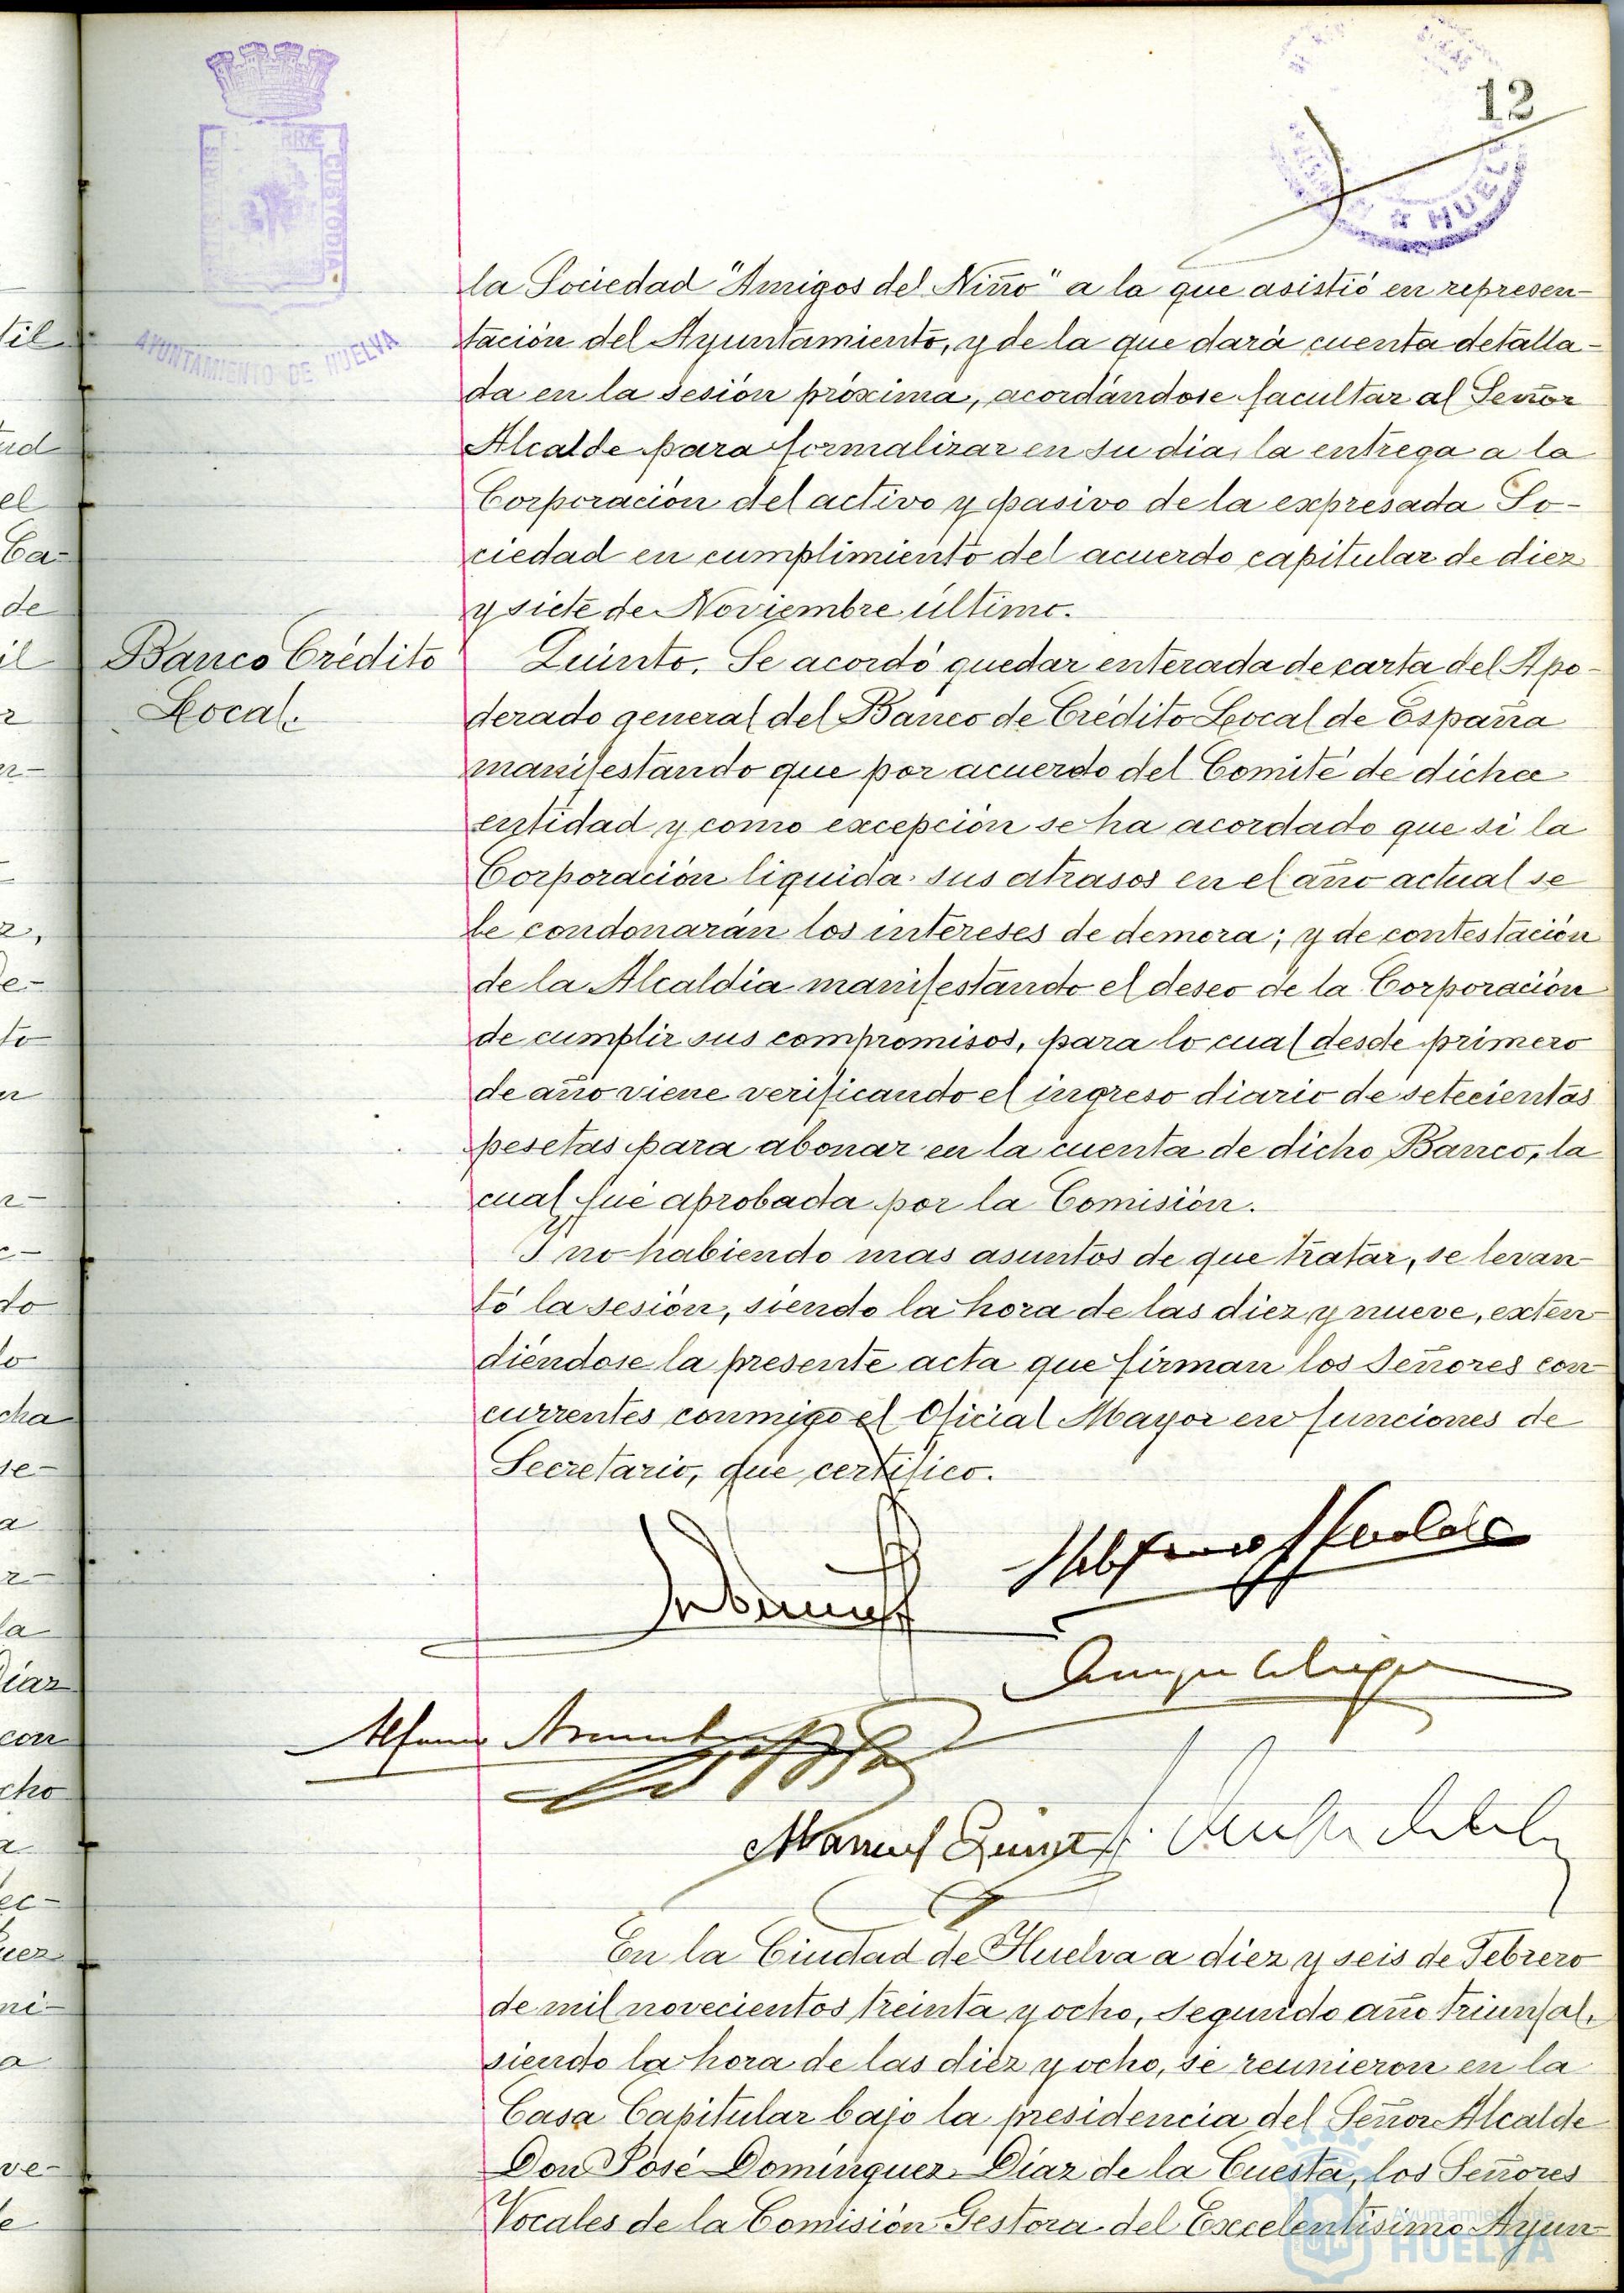 12
AYUNTAMIENTO DE HUELVA
CUSTODIA
HUEL
la Sociedad "Amigos del Niño" a la que asistió en represen-
tación del Ayuntamiento, y de la que dará cuenta detalla-
da en la sesión próxima, acordándose facultar al Señor
Alcalde para formalizar en su dia, la entrega a la
Corporación del activo y pasivo de la expresada So-
ciedad en cumplimiento del acuerdo capitular de diez
y siete de Noviembre último.
Banco Crédito
Local.
Quinto. Se acordó quedar enterada de carta del Apo-
derado general del Banco de Crédito Local de España
manifestando que por acuerdo del Comité de dicha
entidad y como excepción se ha acordado que si la
Corporación liquida sus atrasos en el año actual se
le condonarán los intereses de demora; y de contestación
de la Alcaldia manifestando el deseo de la Corporación
de cumplir sus compromisos, para lo cual desde primero
de año viene verificando el ingreso diario de setecientas
pesetas para abonar en la cuenta de dicho Banco, la
cual fué aprobada por la Comisión.
Y no habiendo mas asuntos de que tratar, se levan-
tó la sesión, siendo la hora de las diez y nueve, exten-
diéndose la presente acta que firman los Señores con-
currentes conmigo el Oficial Mayor en funciones de
Secretario, que certifico.
Manuel
En la Ciudad de Huelva a diez y seis de Febrero
de mil novecientos treinta y ocho, Segundo año triunfal,
siendo la hora de las diez y ocho, se reunieron en la
Casa Capitular bajo la presidencia del Señor Alcalde
Don José Dominguez Díaz de la Cuesta, los Señores
Vocales de la Comisión Gestora del Excelentísimo Ayun-
Ayuntamiento de
HUELVA
til
ud
el
Ca-
de
il
to
do
lo
cha
se-
a
la
Díaz
con
cho
ni-
a
ve-